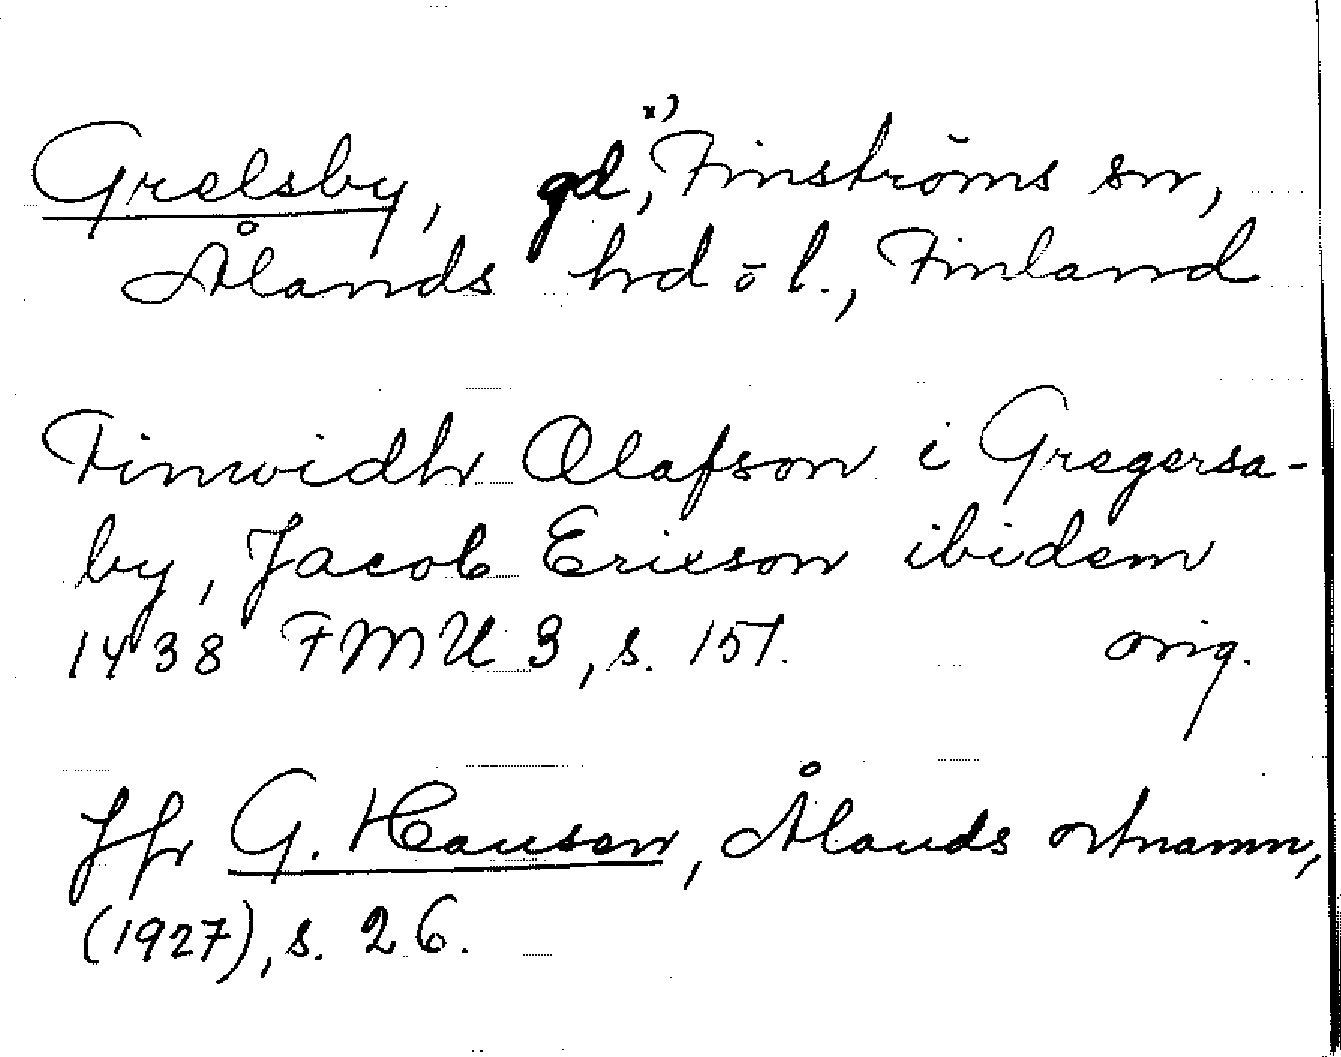 Grelsby, gd,ˣ⁾ Finströms sn,
Ålands hd o l., Finland
Finvidh Olafson i Gregersa-
by, Jacob Ericson ibidem
1438 FMU 3, s. 151. orig.
Jfr G. Hausen, Ålands ortnamn,
(1927), s. 26.